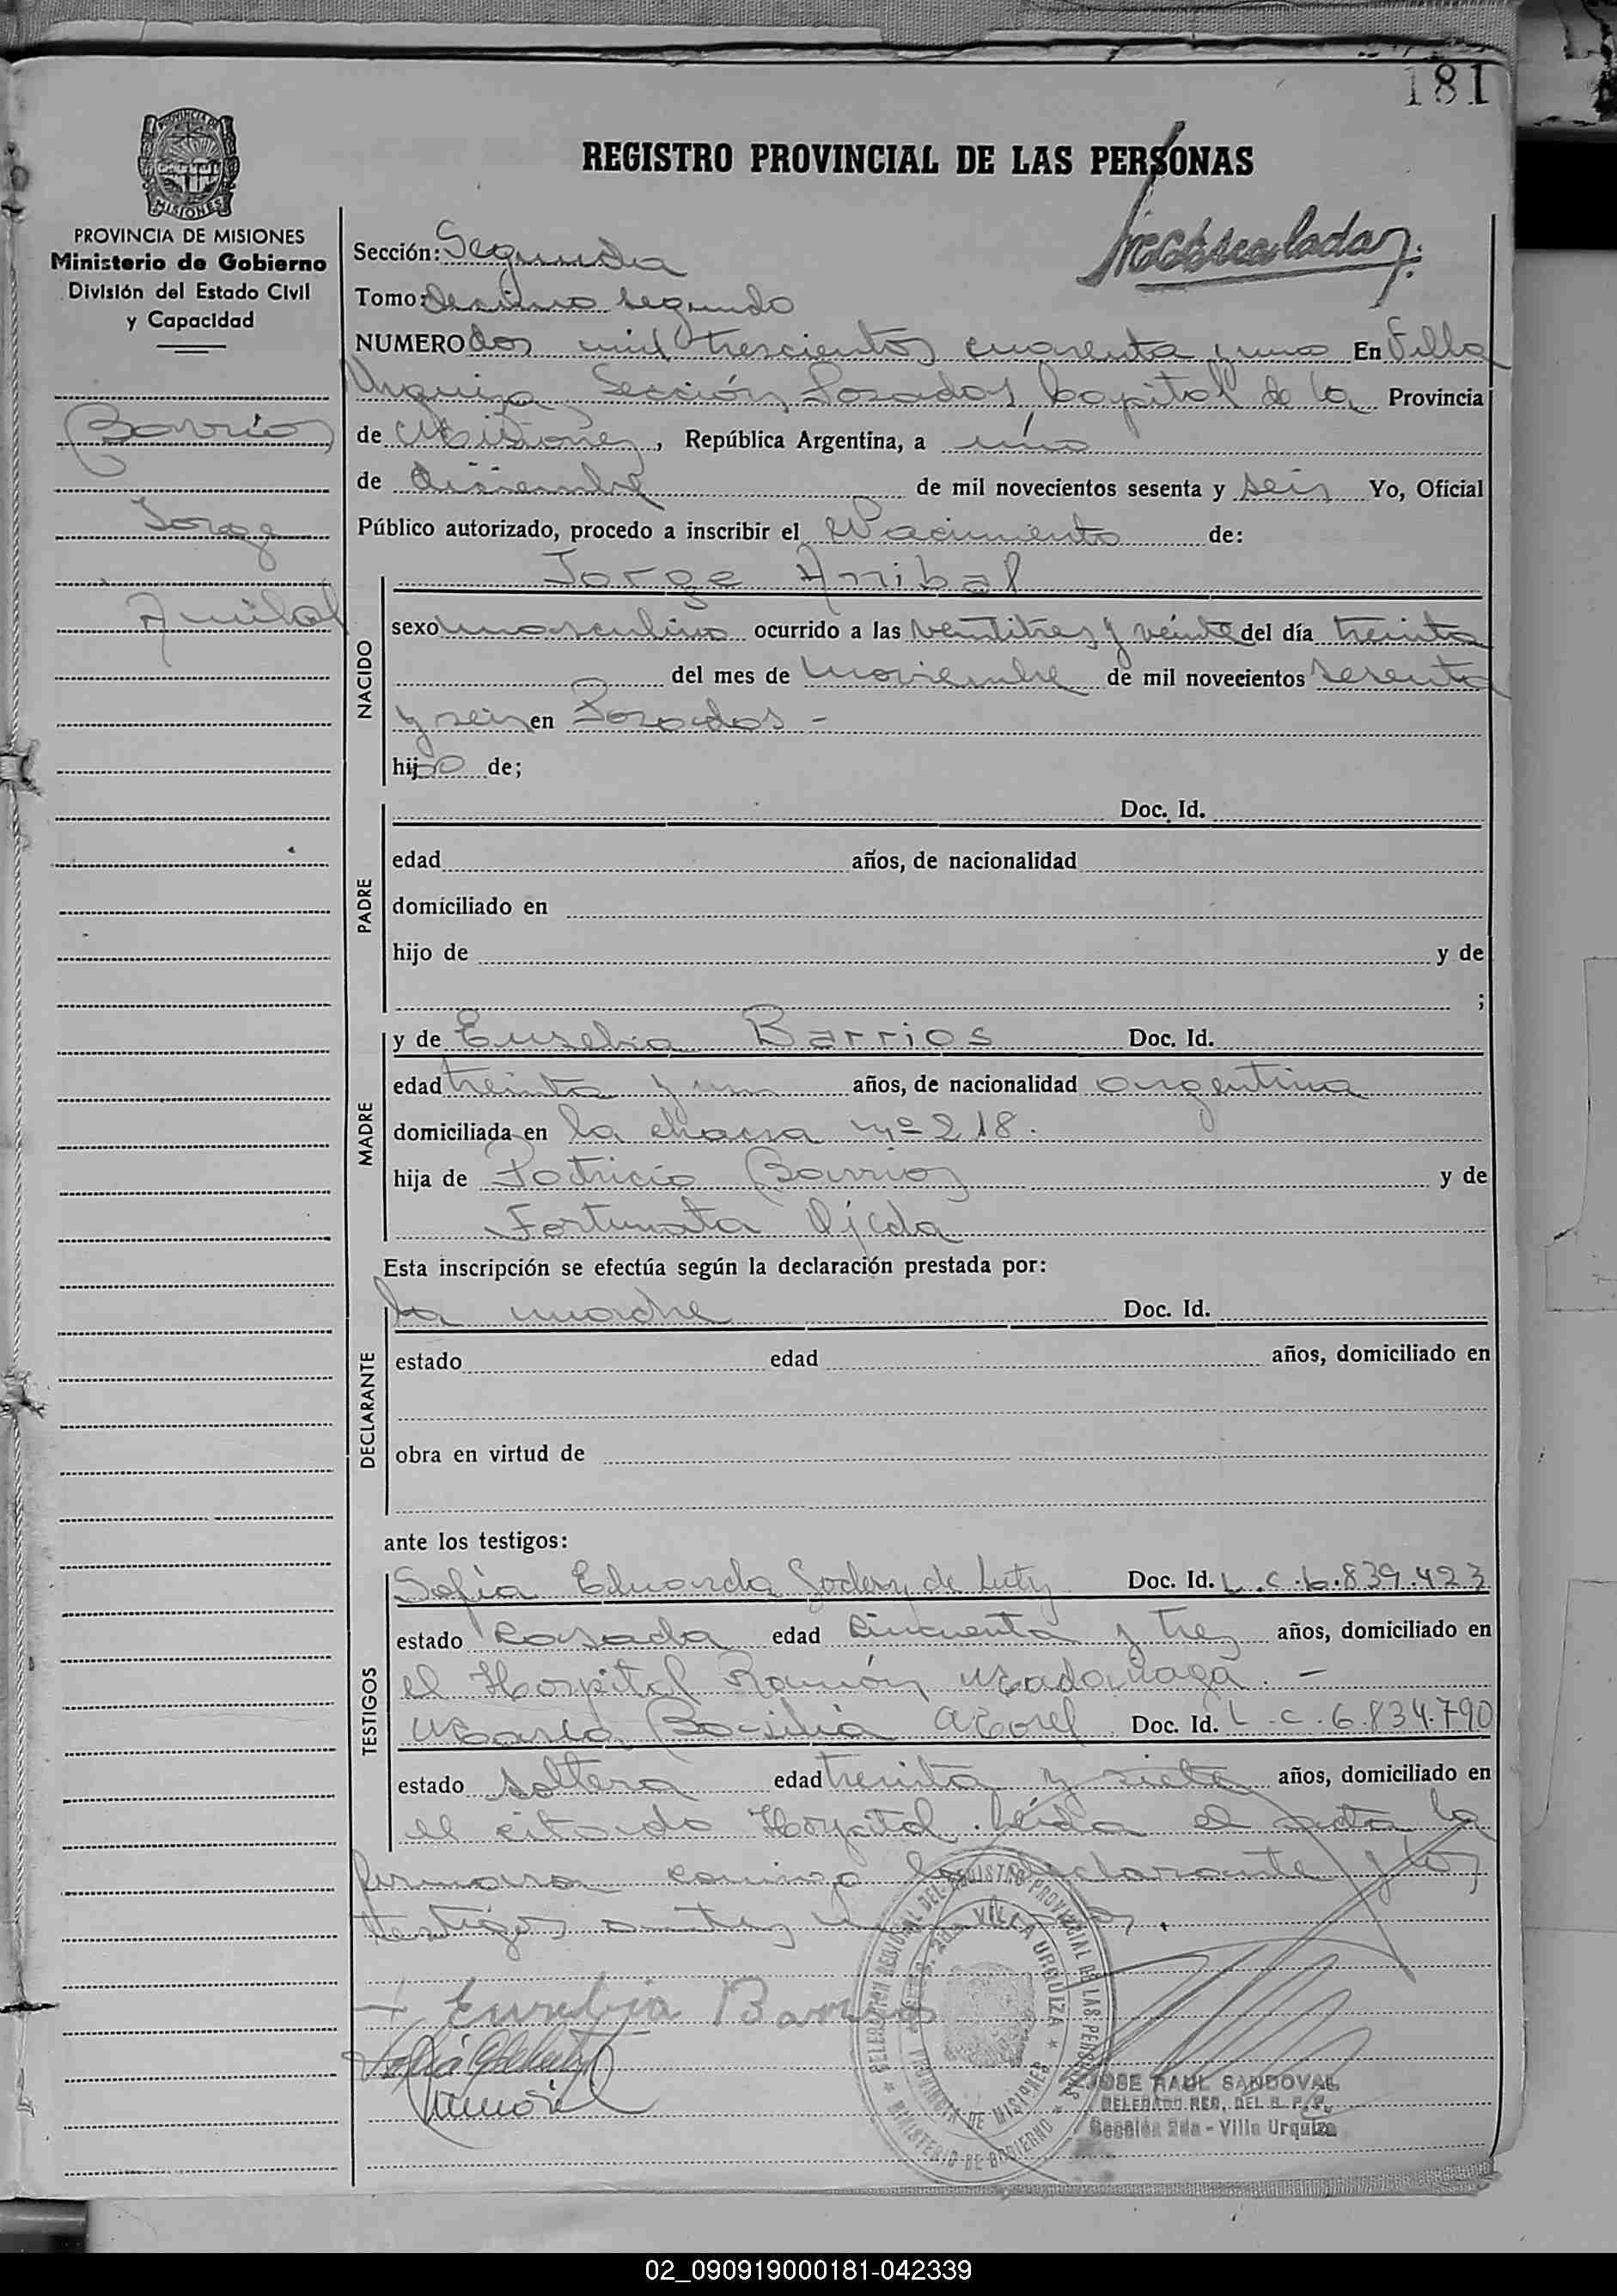 181
REGISTRO PROVINCIAL DE LAS PERSONAS
PROVINCIA DE MISIONES
Ministerio de Gobierno
División del Estado Civil
y Capacidad
Barrios
Jorge
Anibal
Sección: Segunda
Tomo: decimo segundo
NUMERO dos mil trescientos cuarenta y uno En Villa
Urquiza Sección, Posadas, Capital de la Provincia
de Misiones, República Argentina, a uno
de diciembre de mil novecientos sesenta y seis Yo, Oficial
Público autorizado, procedo a inscribir el Nacimiento de:
Jorge Anibal
NACIDO
sexo masculino ocurrido a las ventitres y veinte del día treinta
del mes de noviembre de mil novecientos sesenta
y seis en Posadas -
hijo de;
PADRE
Doc. Id.
edad años, de nacionalidad
domiciliado en
hijo de y de
;
MADRE
y de Eusebia Barrios Doc. Id.
edad treinta y un años, de nacionalidad argentina
domiciliada en la chacra nº 218.
hija de Patricio Barrios y de
Fortunata Ojeda
Esta inscripción se efectúa según la declaración prestada por:
DECLARANTE
la madre Doc. Id.
estado edad años, domiciliado en
obra en virtud de
ante los testigos:
TESTIGOS
Sofía Eduarda Godoy de Doc. Id. L.C.6.839.423
estado casada edad cincuenta y tres años, domiciliado en
el Hospital Ramón Madariaga. -
María Basilia Morel Doc. Id. L.C.6.834.790
estado soltera edad treinta y siete años, domiciliado en
el citado Hospital. Leída el acta, la
firmaron conmigo la declarante y los
testigos antes
Eusebia Barrios
DELEGACION REGIONAL DEL REGISTRO PROVINCIAL DE LAS PERSONAS
MINISTERIO DE GOBIERNO
VILLA URQUIZA
PROVINCIA DE MISIONES
JOSE RAUL SANDOVAL
DELEGADO REG. DEL R. P. P.
Sección 2da - Villa Urquiza
02_090919000181-042339